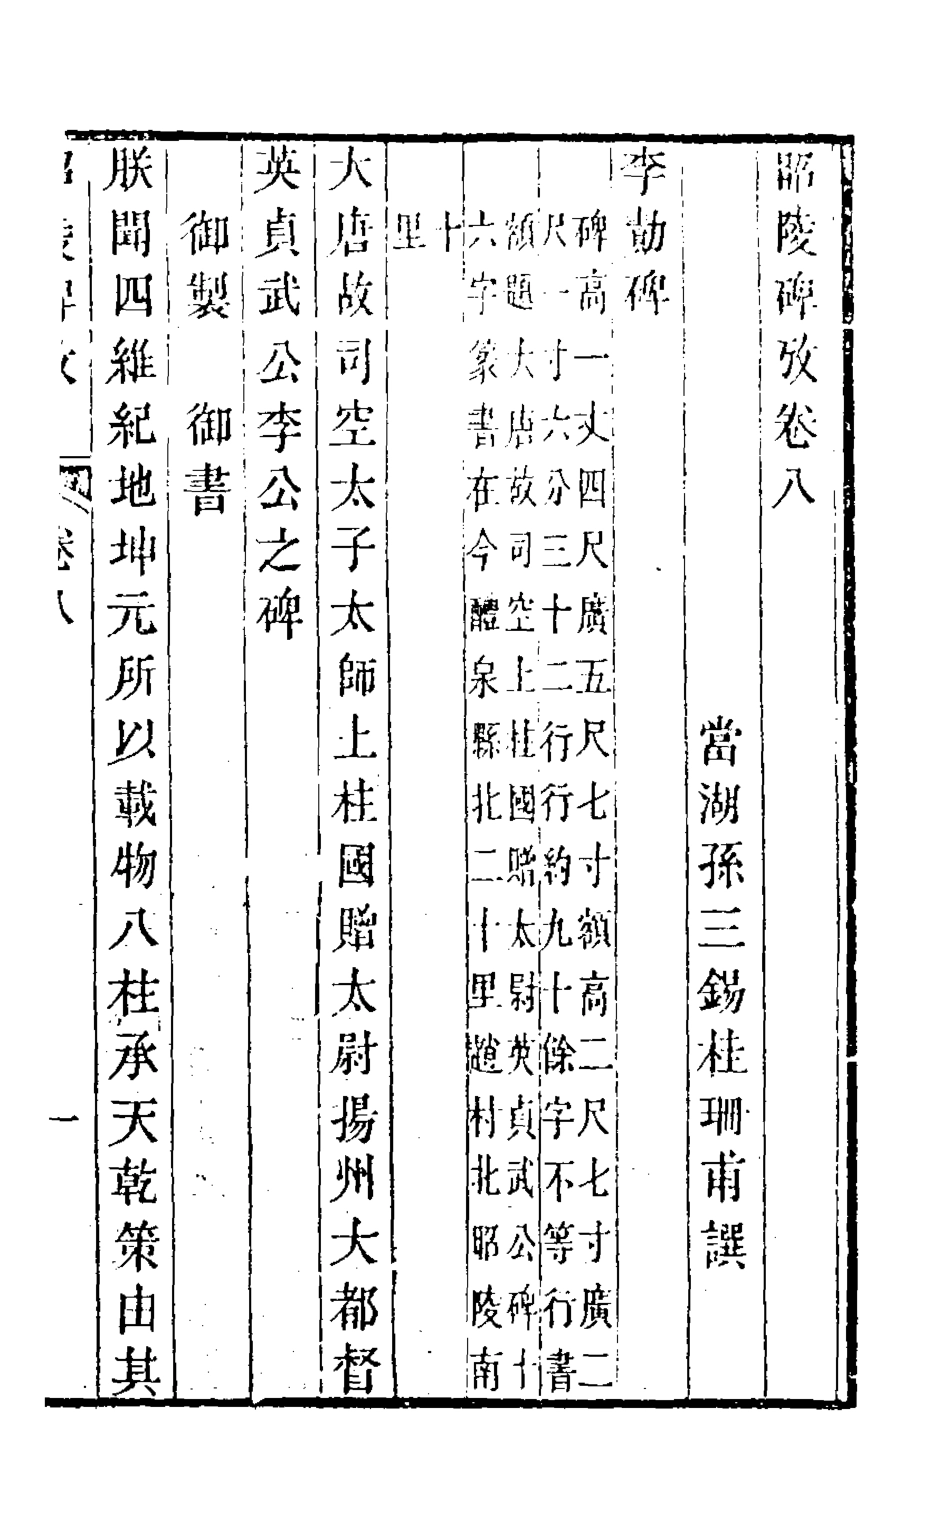 昭陵碑攷卷八
當湖孫三錫桂珊甫譔
李勣碑
碑高一丈四尺廣五尺七寸額高二尺七寸廣二
尺一寸六分三十二行行約九十餘字不等行書
額題大唐故司空上柱國贈太尉英貞武公碑十
六字篆書在今醴泉縣北二十里趙村北昭陵南
十
里
大唐故司空太子太師上柱國贈太尉揚州大都督
英貞武公李公之碑
御製　御書
朕聞四維紀地坤元所以載物八柱承天乾策由其
昭陵碑攷　卷八　一